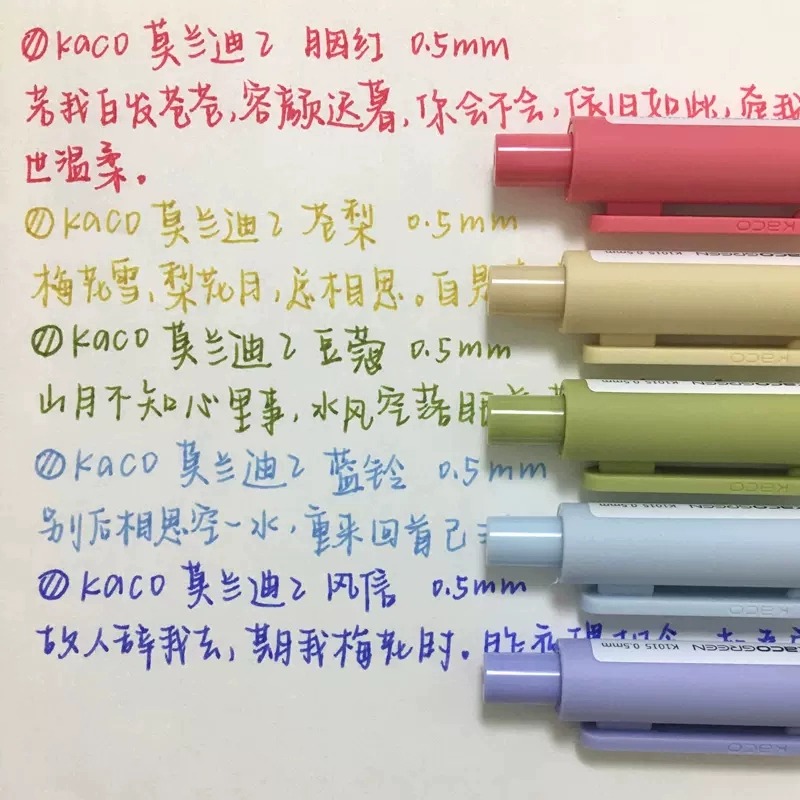 KACO 莫兰迪2 胭红 0.5mm
若我白发苍苍,容颜迟暮,你会不会,依旧如此,
世温柔。
KACO 莫兰迪2 苍梨 0.5mm
梅花雪,梨花月,总相思。自是
KACO 莫兰迪2 豆蔻 0.5mm
山月不知心里事,水风空落眼
KACO 莫兰迪2 蓝铃 0.5mm
别后相思空一水,重来回首已
KACO 莫兰迪2 风信 0.5mm
故人辞我去,期我梅花时。昨夜
KACO
ACOGREEN K1015 0.5mm
KACO
ACOGREEN K1015 0.5mm
KACO
ACOGREEN K1015 0.5mm
KACO
ACOGREEN K1015 0.5mm
KACO